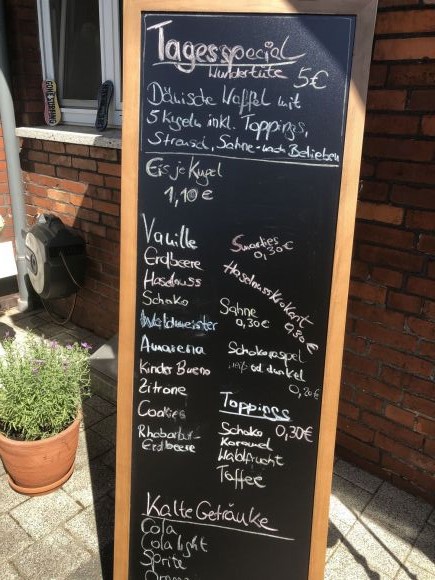 Tagesspecial
Wundertüte 5€
Dänische Waffel mit
5 Kugeln inkl. Toppings,
Streusel, Sahne - nach Belieben
Eis je Kugel
1,10€
Vanille
Erdbeere
Haselnuss
Schoko
Waldmeister
Amarena
Kinder Bueno
Zitrone
Cookies
Rhabarber-
Erdbeere
Smarties
0,30€
Haselnusskrokant
0,30€
Sahne
0,30€
Schokoraspel
od. dunkel
0,30€
Toppings
Schoko 0,30€
Karamel
Waldfrucht
Toffee
Kalte Getränke
Cola
Cola light
Sprite